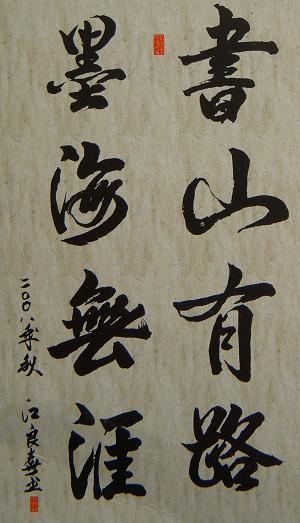 書山有路
墨海無涯
二〇〇八年秋 江良喜書